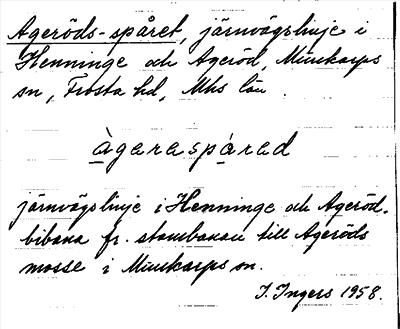 Ageröds-spåret, järnvägslinje i
Henninge och Ageröd, Munkarps
sn, Frosta hd, Mhs län.
àgeraspárad
järnvägslinje i Henninge och Ageröd.
bibana fr. stambanan till Ageröds
mosse i Munkarps sn.
I. Ingers 1958.